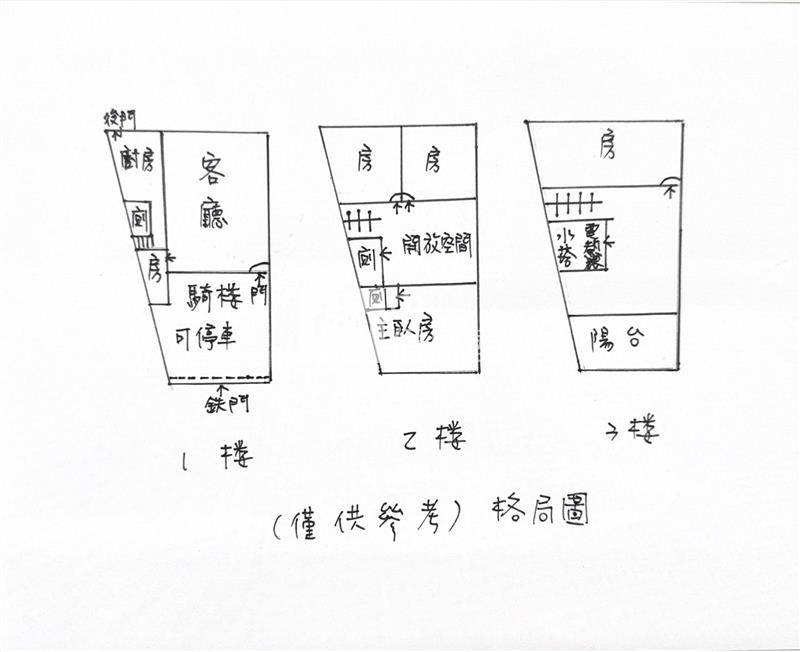 後門
廚房
客廳
廁
房
騎楼
門
可停車
鉄門
1 樓
房
房
開放空間
廁
廁
主臥房
2 樓
房
水塔
電熱器
陽台
3樓
(僅供參考) 格局圖